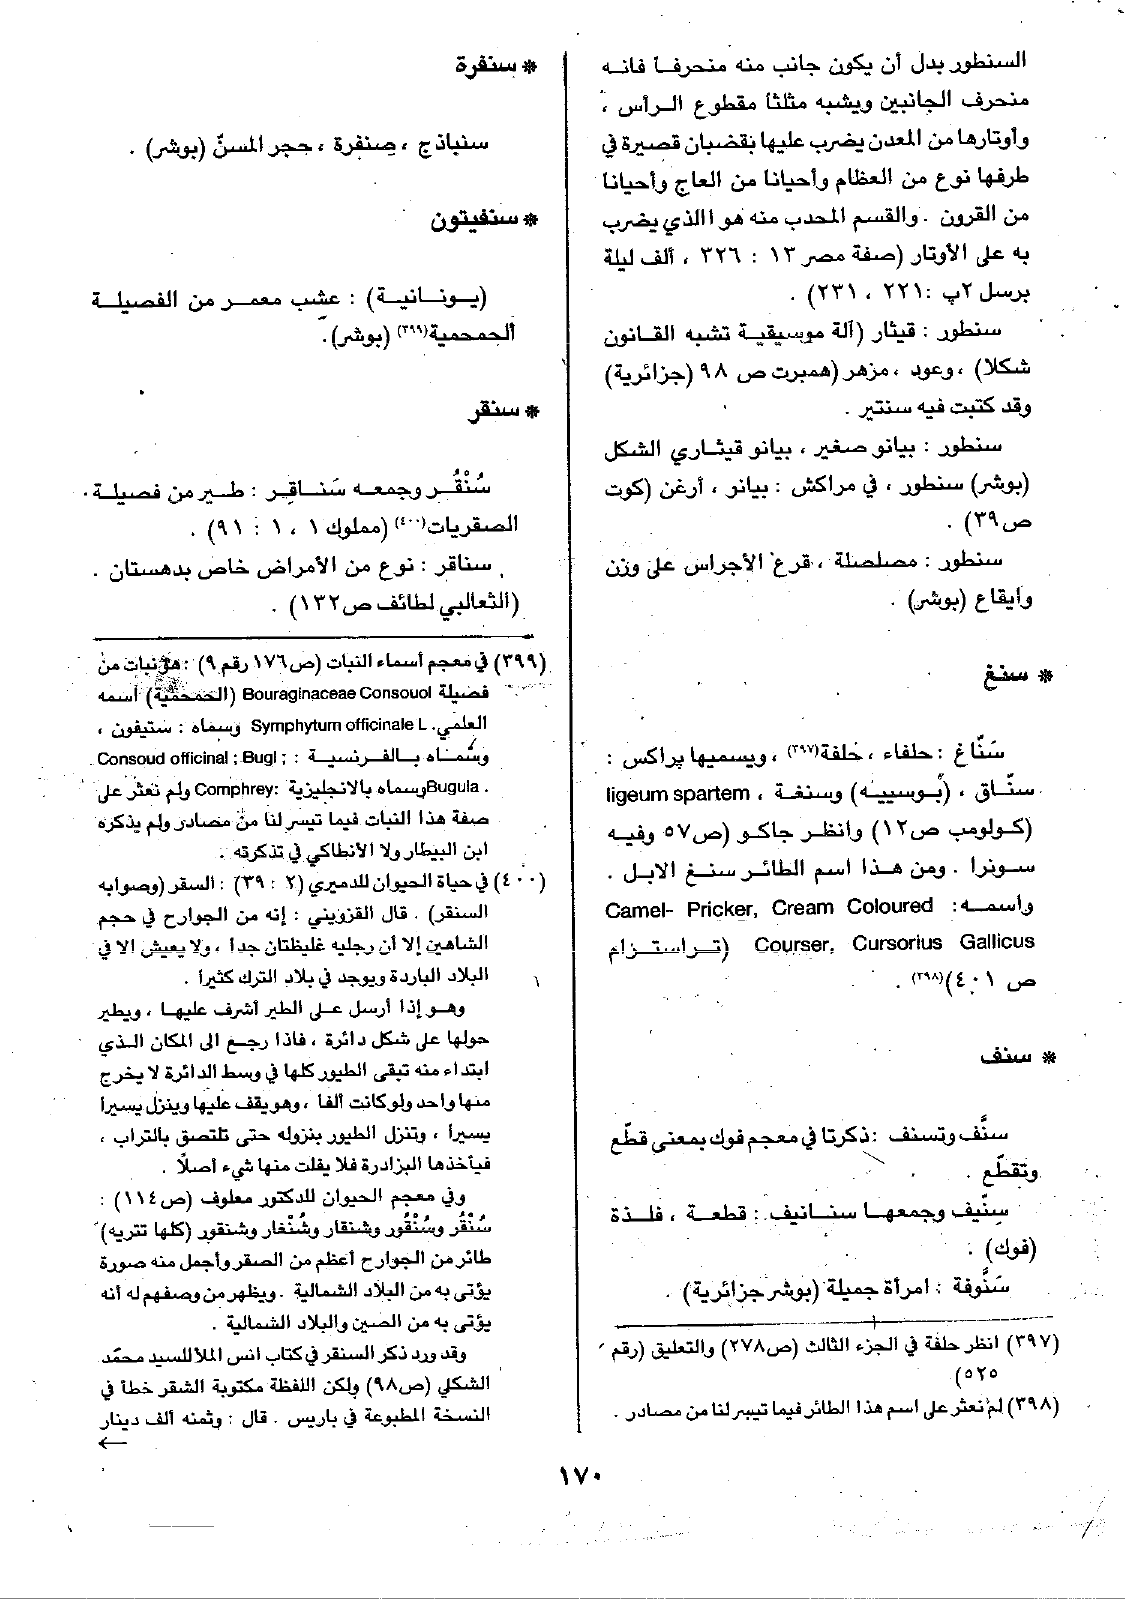 السنطور بدل أن يكون جانب منه منحرفاً فانه
منحرف الجانبين ويشبه مثلثاً مقطوع الرأس ،
وأوتارها من المعدن يضرب عليها بقضبان قصيرة في
طرفها نوع من العظام وأحيانا من العاج وأحيانا
من القرون . والقسم المحدب منه هو االذي يضرب
به على الأوتار (صفة مصر ١٣ : ٣٢٦ ، ألف ليلة
برسل ٢پ :٢٢١ ، ٢٣١) .
سنطور : قيثار (آلة موسيقية تشبه القانون
شكلا) ، وعود ، مزهر (همبرت ص ٩٨ (جزائرية)
وقد كتبت فيه سنتير .
سنطور : بيانو صغير ، بيانو قيثاري الشكل
(بوشر) سنطور ، في مراكش : بيانو ، أرغن (كوت
ص٣٩) .
سنطور : مصلصلة ، قرع الأجراس على وزن
وايقاع (بوشر) .
* سنغ
سَنّاغ : حلفاء ، حَلفة(٣٩٧) ، ويسميها پراكس :
سنّاق ، (بوسييه) وسنغة ، ligeum spartem
(كولومب ص١٢) وانظر جاكو (ص٥٧ وفيه
سونرا . ومن هذا اسم الطائر سنغ الابل .
واسمه: Camel- Pricker, Cream Coloured
Courser, Cursorius Gallicus (تراستزام
ص ٤٠١)(٣٩٨) .
* سنف
سنَّف وتسنف :ذكرتا في معجم فوك بمعنى قطّع
وتقطّع .
سنّيف وجمعها سنانيف : قطعة ، فلذة
(فوك) .
سَنُّوفة : امرأة جميلة (بوشر جزائرية) .
(٣٩٧) انظر حلفة في الجزء الثالث (ص٢٧٨) والتعليق (رقم
٥٢٥)
(٣٩٨) لم نعثر على اسم هذا الطائر فيما تيسر لنا من مصادر .
* سنفرة
سنباذج ، صنفرة ، حجر المسنّ (بوشر) .
* سنفيتون
(يونانية) : عشب معمر من الفصيلة
الحمحمية(٣٩٩) (بوشر).
* سنقر
سُنْقُر وجمعه سَناقِر : طير من فصيلة
الصقريات(٤٠٠) (مملوك ١ ، ١ : ٩١) .
سناقر : نوع من الأمراض خاص بدهستان .
(الثعالبي لطائف ص١٣٢) .
(٣٩٩) في معجم أسماء النبات (ص١٧٦ رقم ٩) : هو نبات من
فصيلة Bouraginaceae Consouol (الحمحمية) اسمه
العلمي. Symphytum officinale L وسماه : ستيفون ،
وسُماه بالفرنسية : Consoud officinal ; Bugl ;
Bugula . وسماه بالانجليزية :Comphrey ولم نعثر على
صفة هذا النبات فيما تيسر لنا من مصادر ولم يذكره
ابن البيطار ولا الأنطاكي في تذكرته .
(٤٠٠) في حياة الحيوان للدميري (٢ : ٣٩) : السقر (وصوابه
السنقر) . قال القزويني : إنه من الجوارح في حجم
الشاهين إلا أن رجليه غليظتان جداً ، ولا يعيش الا في
البلاد الباردة ويوجد في بلاد الترك كثيراً .
وهو إذا أرسل على الطير أشرف عليها ، ويطير
حولها على شكل دائرة ، فاذا رجع الى المكان الذي
ابتداء منه تبقى الطيور كلها في وسط الدائرة لا يخرج
منها واحد ولو كانت ألفاً ، وهو يقف عليها وينزل يسيراً
يسيراً ، وتنزل الطيور بنزوله حتى تلتصق بالتراب ،
فيأخذها البزادرة فلا يفلت منها شيء أصلاً .
وفي معجم الحيوان للدكتور معلوف (ص١١٤) :
سُنْقُر وسُنْقُور وشنقار وشُنْغار وشنقور (كلها تتريه)
طائر من الجوارح أعظم من الصقر وأجمل منه صورة
يؤتى به من البلاد الشمالية . ويظهر من وصفهم له أنه
يؤتى به من الصين والبلاد الشمالية .
وقد ورد ذكر السنقر في كتاب انس الملأ للسيد محمّد
الشكلي (ص٩٨) ولكن اللفظة مكتوبة الشقر خطأ في
النسخة المطبوعة في باريس . قال : وثمنه ألف دينار
←
١٧٠